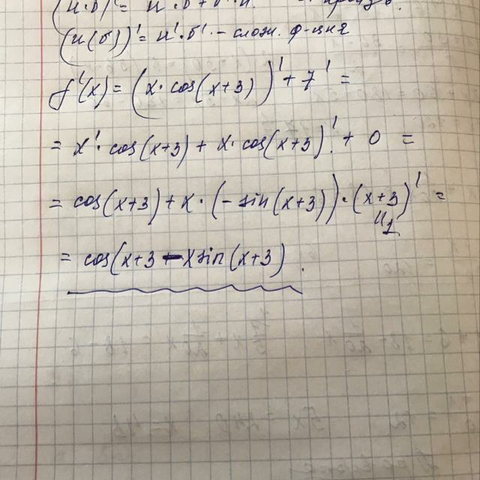 (u·v)' = u'·v + v'·u - произв.
(u(v))' = u'·v' - слож. ф-ция
f'(x) = (x·cos(x+3))' + 7' =
= x'·cos(x+3) + x·cos(x+3)' + 0 =
= cos(x+3) + x·(-sin(x+3))·(x+3)' =
"1
= cos(x+3 - xsin(x+3).